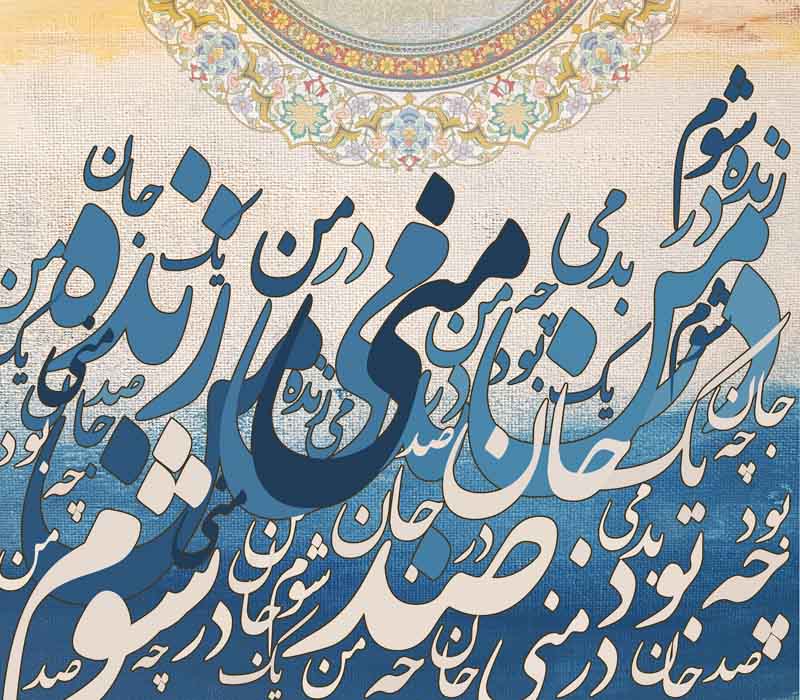 زنده شوم
جان
در من بدمی در من یک زنده
من چه منی می
در من شوم بود یک
یک منی صد جان زنده می در
جان چه یک جان صد
بود چه
بود بدمی جان منی شوم
چه تو در صد جان من
شوم در
صد جان در منی جان چه من یک چه صد